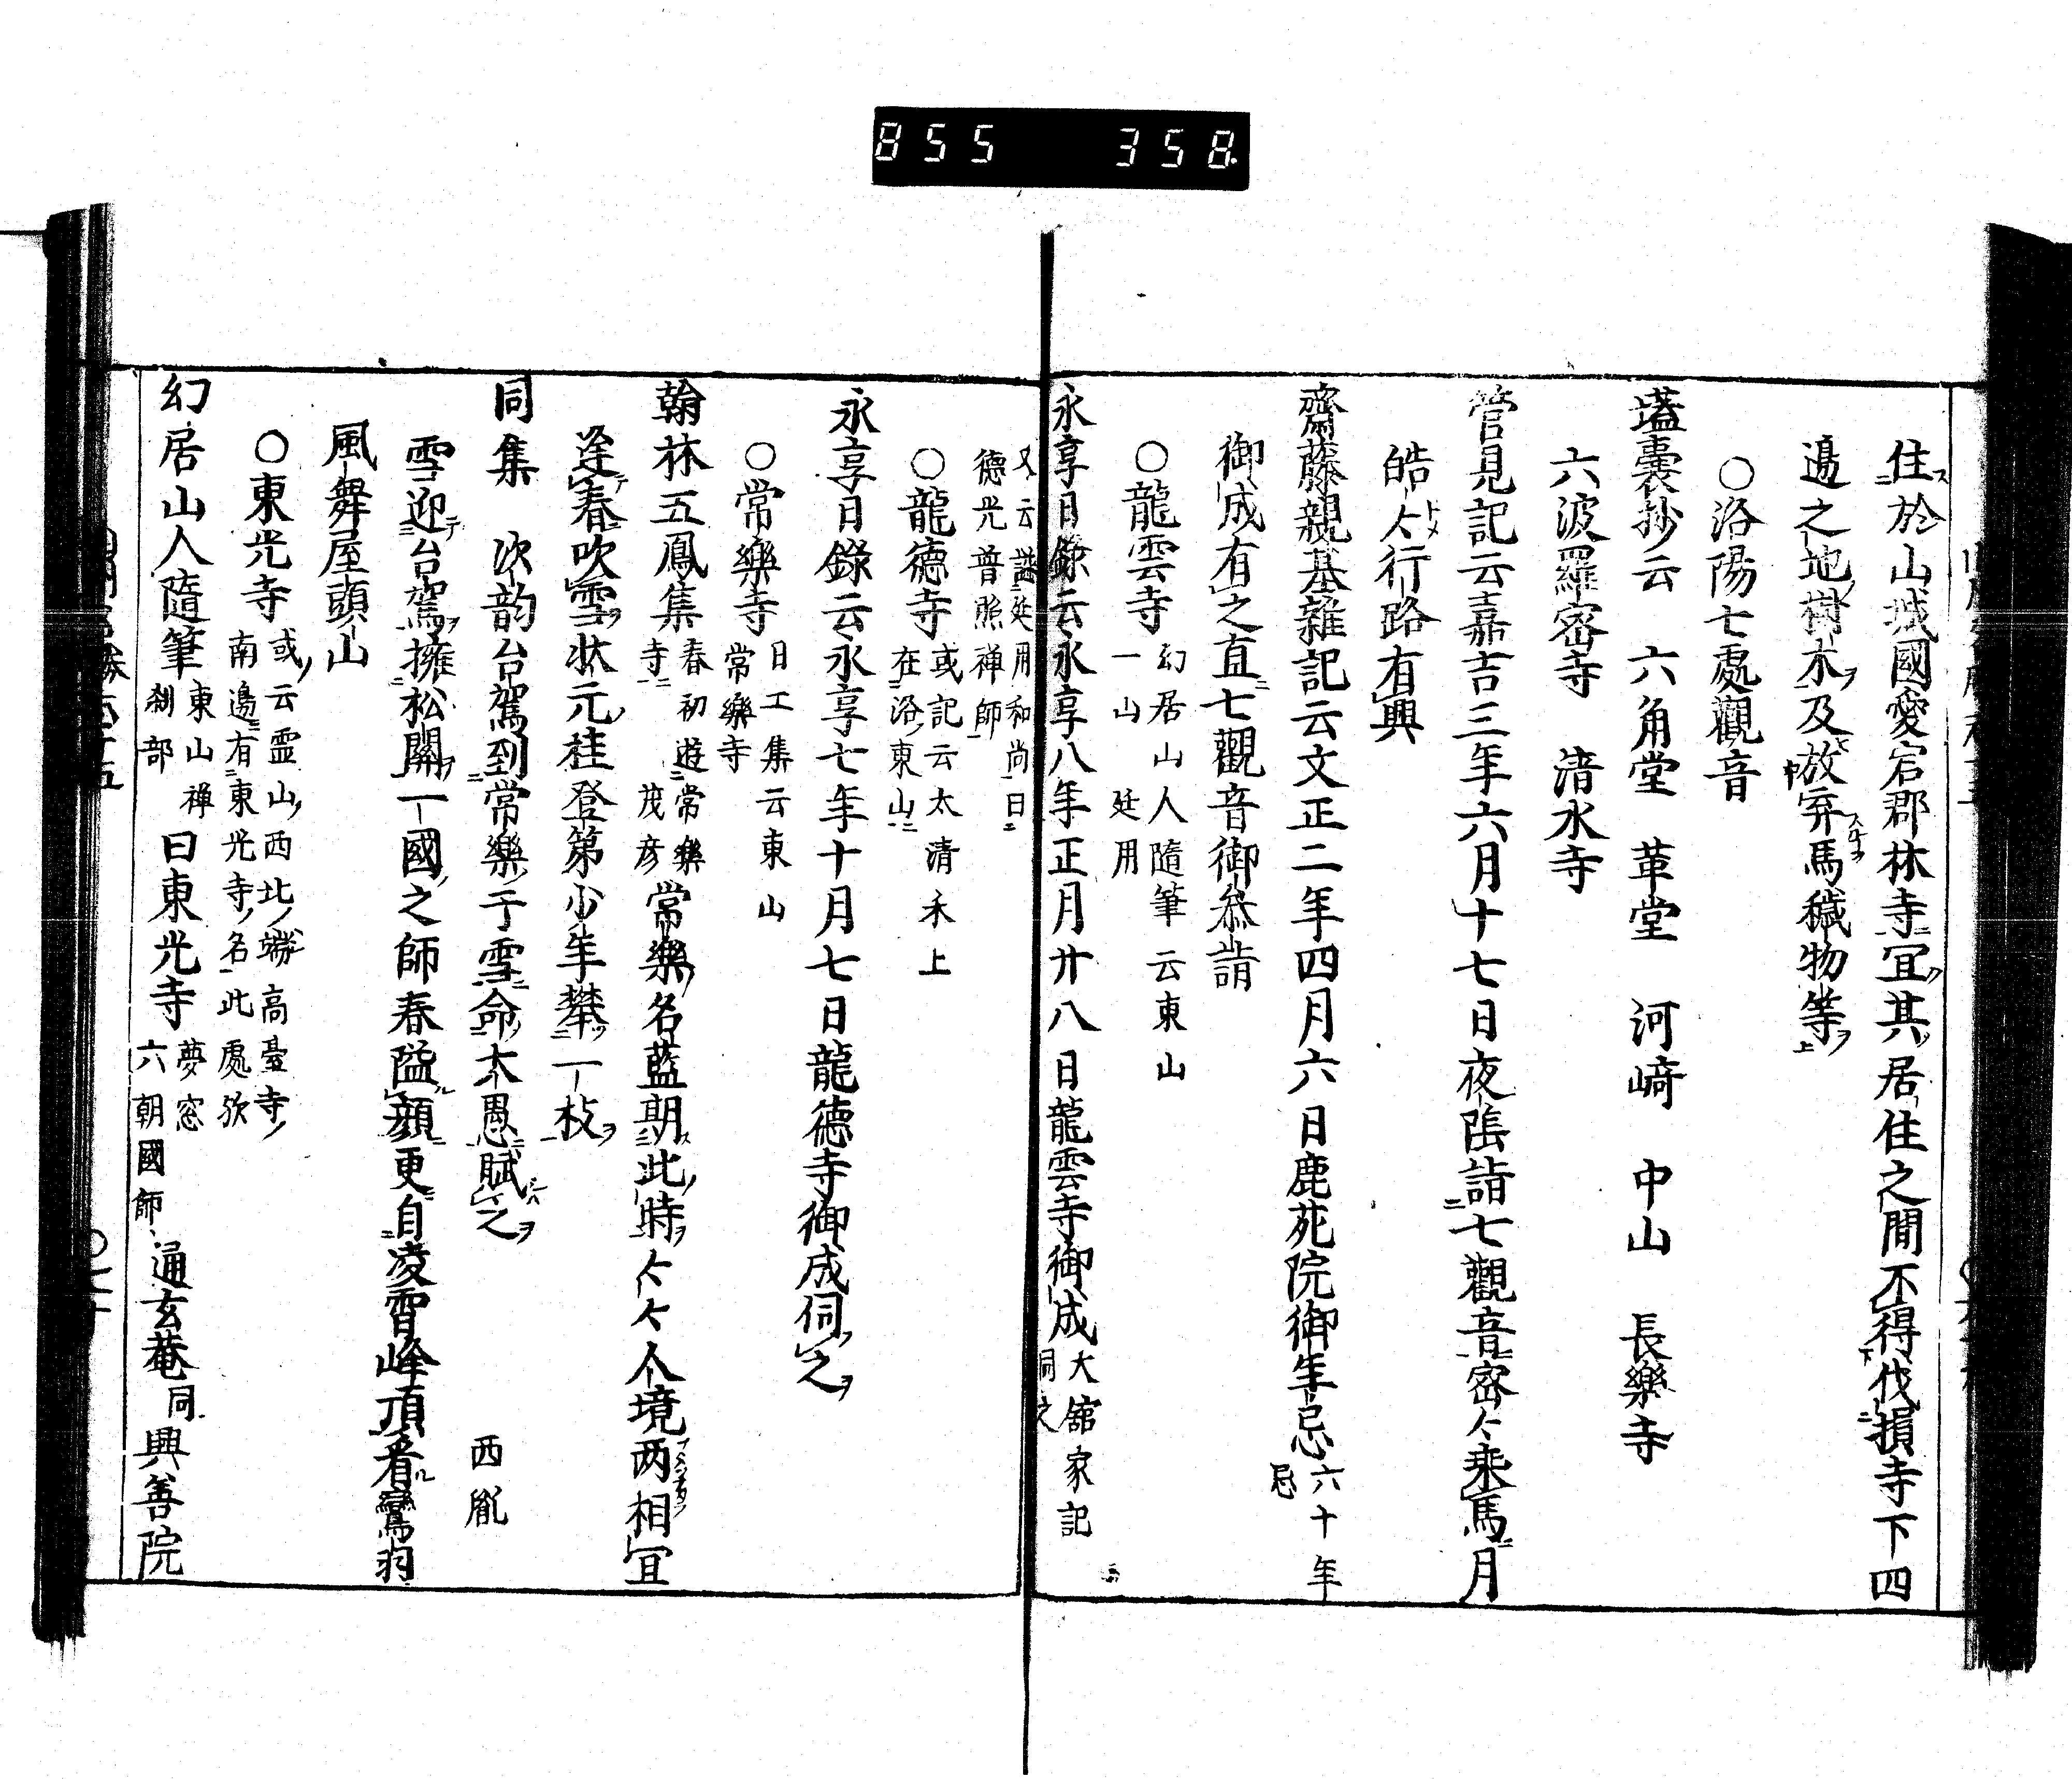 855 358.
住於山城國愛宕郡林寺宜其居住之間不得伐損寺下四
邊之地樹木及放弃馬穢物等
○洛陽七處觀音
壒嚢抄云 六角堂 革堂 河﨑 中山 長樂寺
六波羅密寺 清水寺
管見記云嘉吉三年六月十七日夜陰詣七觀音密々乗馬月
皓々行路有興
齋藤親基雜記云文正二年四月六日鹿苑院御年忌六十年
忌
御成有之直七觀音御叅詣
○龍雲寺 幻居山人隨筆云東山
一山 延用
永享日録云永享八年正月廿八日龍雲寺御成 大舘家記
同之
又云 謚延用和尚曰
德光普照禅師
○龍德寺 或記云太清禾上
在洛東山
永享日録云永享七年十月七日龍德寺御成伺之
○常樂寺 日工集云東山
常樂寺
翰林五鳳集 春初遊常樂
寺 茂彦 常樂名藍期此時々々人境两相宜
逢春吹雪状元桂登第少年攀一枝
同集 次韵台駕到常樂于雪命木愚賦之 西胤
雪迎台駕擁松關一國之師春隘顔更自凌霄峰頂看鸞羽
風舞屋頭山
○東光寺 或云霊山西北端高臺寺
南邊有東光寺名此處欤
幻居山人隨筆 東山禅
刹部 曰東光寺 夢窓
六朝國師 通玄菴同 興善院